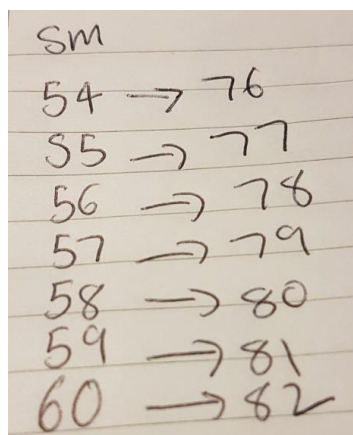 SM
54 → 76
55 → 77
56 → 78
57 → 79
58 → 80
59 → 81
60 → 82